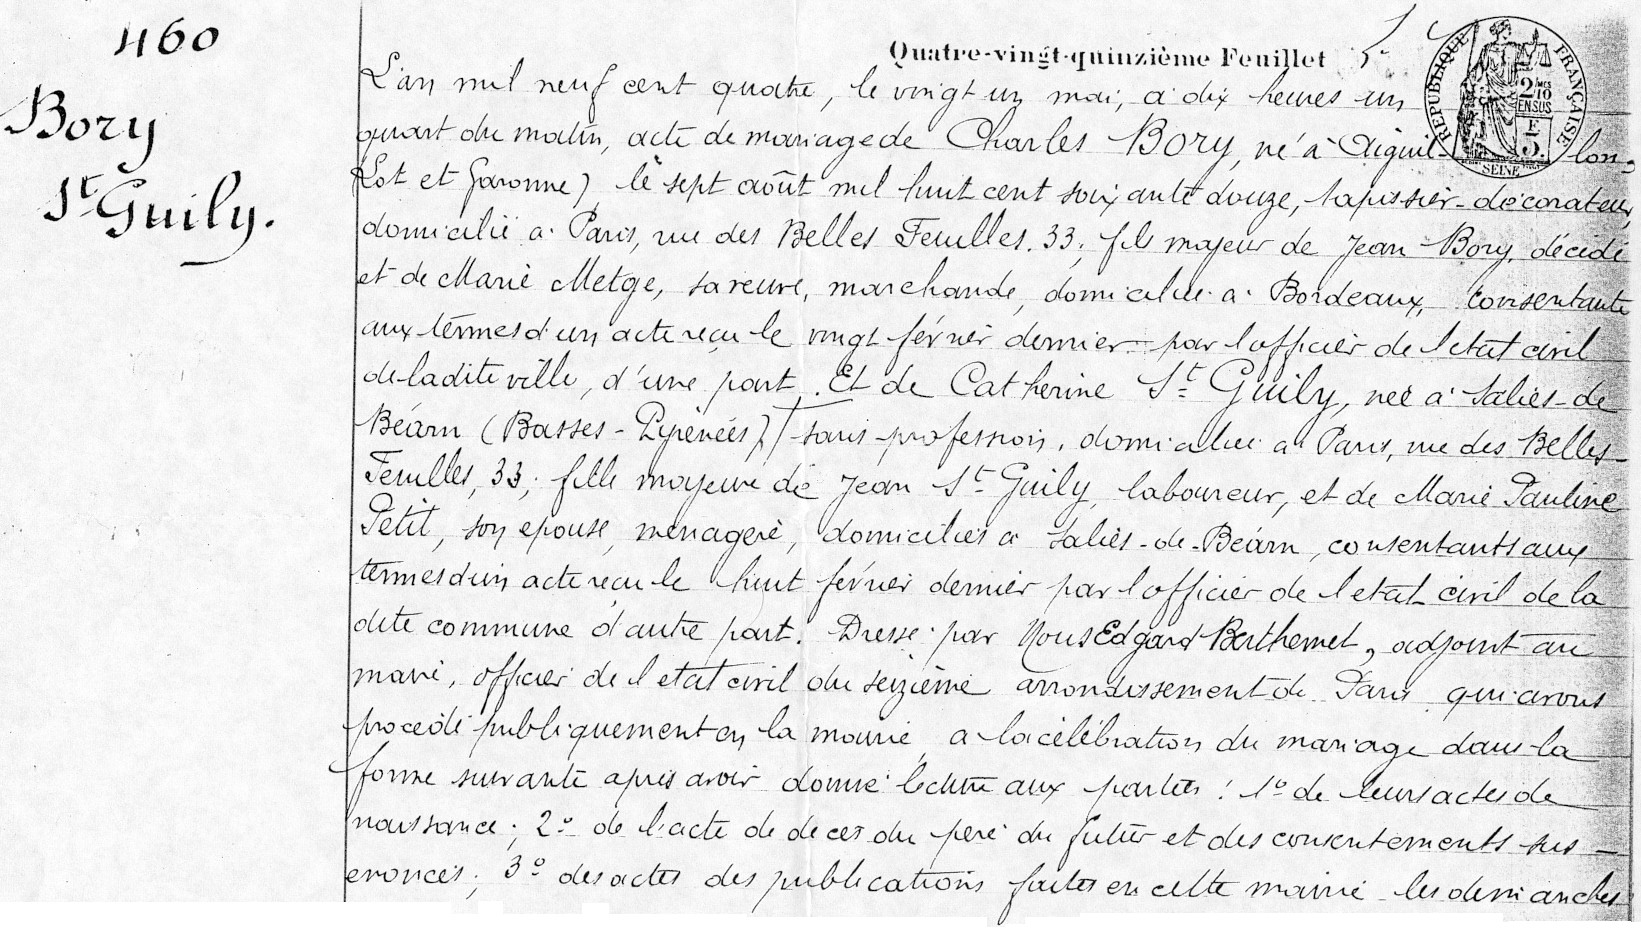 460
Bory
St Guily.
Quatre-vingt-quinzième Feuillet
RÉPUBLIQUE FRANÇAISE
2 10MES
EN SUS
E
3.
SEINE
L'an mil neuf cent quatre, le vingt un mai, à dix heures un
quart du matin, acte de mariage de Charles Bory, né à Aiguil-lon,
(Lot et Garonne) le sept août mil huit cent soixante douze, tapissier-décorateur,
domicilié à Paris, rue des Belles Feuilles. 33; fils majeur de Jean Bory, décédé
et de Marie Metge, sa veuve, marchande, domiciliée à Bordeaux, consentante
aux termes d'un acte reçu le vingt février dernier par l'officier de l'état civil
de ladite ville, d'une part. Et de Catherine St Guily, née à Salies-de
Béarn (Basses-Pyrénées) sans profession, domiciliée à Paris, rue des Belles-
Feuilles, 33; fille majeure de Jean St Guily, laboureur, et de Marie Pauline
Petit, son épouse, ménagère, domiciliés à Salies-de-Béarn, consentants aux
termes d'un acte reçu le huit février dernier par l'officier de l'état civil de la
dite commune d'autre part. Dressé par Nous Edgard Berthemet, adjoint au
maire, officier de l'état civil du seizième arrondissement de Paris qui avons
procédé publiquement en la mairie à la célébration du mariage dans la
forme suivante après avoir donné lecture aux parties: 1º de leurs actes de
naissance; 2º de l'acte de décès du père du futur et des consentements sus-
énoncés; 3º des actes des publications faites en cette mairie les dimanches